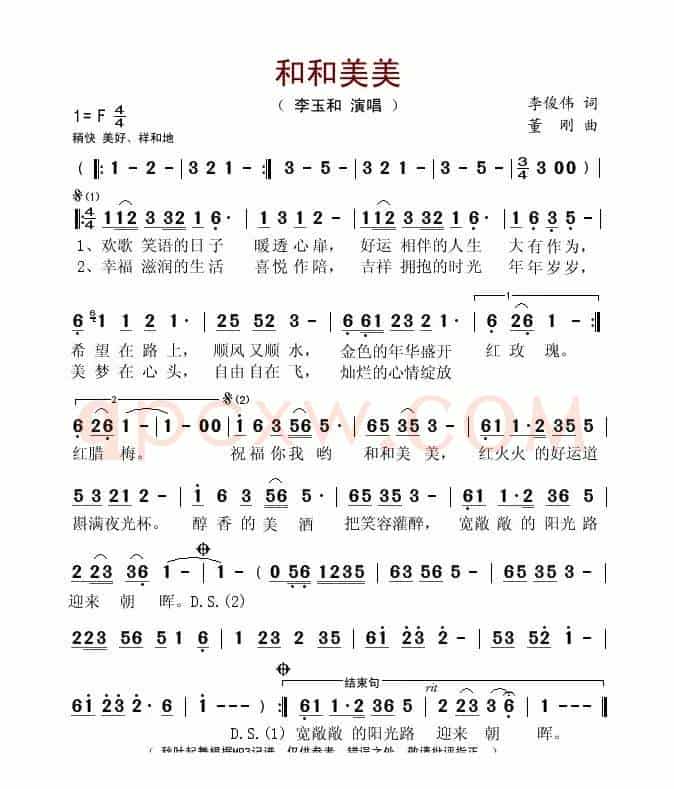 和和美美
( 李玉和 演唱 )
李俊伟 词
1= F 4/4
董 刚 曲
稍快 美好、祥和地
( 𝄆 1 - 2 - | 3 2 1 - | 3 - 5 - | 3 - 5 - | 3/4 3 0 0 )
𝄋(1)
4/4 112 3 32 1 6· | 1 3 5 1 3 - | 112 3 32 1 6· | 1 6 3 5 -
1、欢歌 笑语的日子 暖透心扉, 好运 相伴的人生 大有作为,
2、幸福 滋润的生活 喜悦作陪, 吉祥 拥抱的时光 年年岁岁,
1
6 6 1 1 2 1· | 25 52 3 - | 6 61 23 2 1 | 6 26 1 - :
希望在路上, 顺风又顺水, 金色的年华盛开 红玫 瑰。
美梦在心头, 自由自在飞, 灿烂的心情绽放
2 𝄋(2)
6 26 1 - | 1 - 0 0 | i 6 3 56 5 | 65 35 5 - | 61 1·2 35 5
qpcxw.COM
红腊 梅。 祝福你我 哟 和和美 美, 红火火 的好运道
5 3 21 2 - | i 6 3 56 5 | 65 35 5 - | 61 1·2 36 5
斟满夜光杯。 醇香的美 酒 把笑容灌醉, 宽敞敞 的阳光路
2 23 36 1 - | 1 - ( 0 56 1235 | 6i 65 3 - | 65 35 3 -
迎来 朝 晖。D.S.(2)
223 56 5 1 6 | 6i 23 2 - | 53 52 1 -
结束句 rit
6i 23 2·6 | i - - - ) : 61 1·2 36 5 | 2 23 3 6 | 1 - - -
D.S.(1) 宽敞敞 的阳光路 迎来 朝 晖。